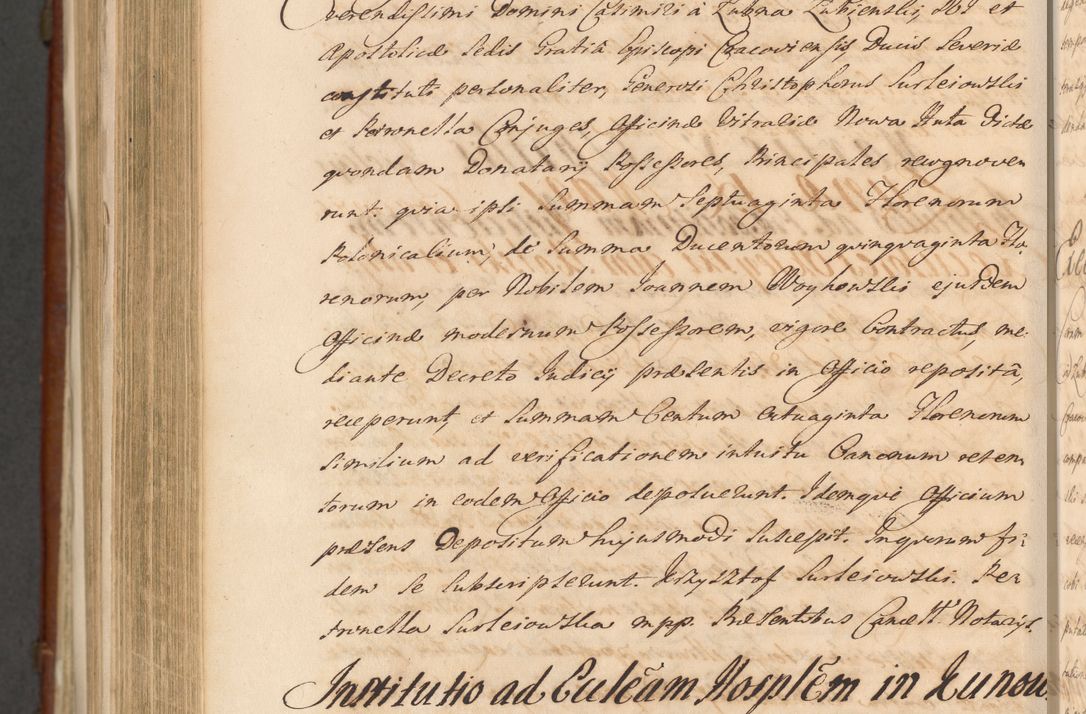 verendissimi Domini Casimiri à Łubna Łubienskij Dei et
Apostolicæ Sedis Gratiâ Episcopi Cracoviensis, Ducis Severiæ
constituti personaliter, Generosi Christophorus Surleiowski
et Petronella Conjuges, Officinæ Vitraliæ Nowa Huta dictæ
quondam Donatarij Possessores, Principales recognoverunt
runt. quia ipsi Summam Septuaginta Florenorum
Polonicalium, de Summa Ducentorum quinquaginta Flo
renorum, per Nobilem Joannem Woyhowski ejusdem
Officinæ modernum Possessorem, vigore Contractus, me
diante Decreto Judicij præsentis in Officio repositâ,
receperunt, et Summam Centum Florenorum
similium ad verificationem intuitu Canonum reten
torum in eodem Officio deposuerunt. Idemque Officium
præsens Depositum hujusmodi suscepit. In quorum fi:
dem se subscripserunt. Krzysztof Surleiowski. Pet
tronella Surleiowska mpp. Præsentibus Notarijs.
Institutio ad Eccleãm Hosplẽm in